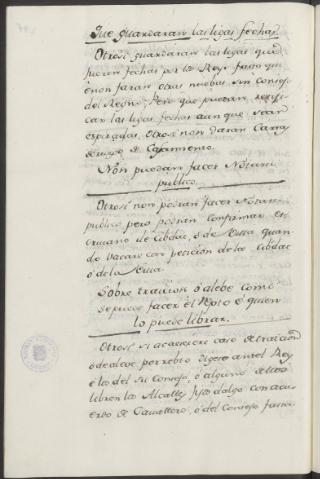 Que guardaran las ligas fechas
Otrosi guardaran las ligas que
fueron fechas por los Reyes fasta aqui
é non faran otras nuebas sin consejo
del Regno; Pero que puedan
car las ligas fechas aunque sean
espiradas, Otrosi non daran Carta
de Casamiento.
Non puedan facer Notario
publico.
Otrosi non podran facer Notario
publico pero podran confirmar es-
cribano de Cibdat, ó de Villa quan-
do vacare con peticion de la Cibdat
ó de la Villa.
Sobre traicion ó alebe como
se puede facer el Repto é quien
lo puede librar.
Otrosi si acaesciere caso de traicion
ó de aleve por repto digese ante el Rey
é los del su Consejo, ó alguno de ellos
libren los Alcalles fijosdalgo con acu-
erdo de Cavalleros, ó del Consejo fasta